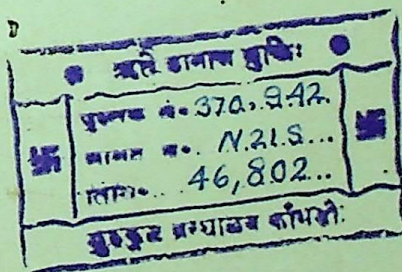 ऋते ज्ञानान्न मुक्तिः
पुस्तक सं० 370.942
आगत सं० N.21.S...
तिथि० 46,802...
गुरुकुल ग्रन्थालय काँगड़ी.